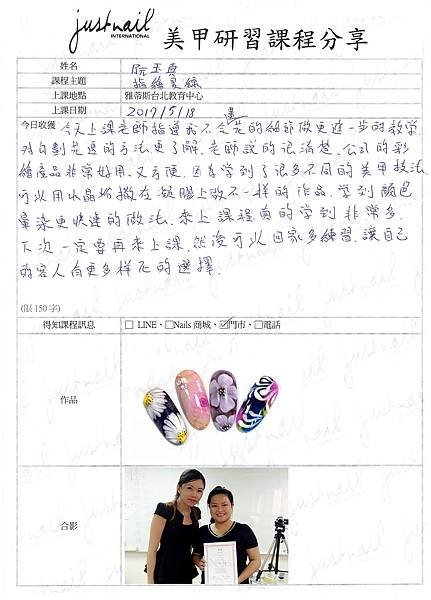 justnail
INTERNATIONAL
美甲研習課程分享
姓名 阮玉真
課程主題 指繪美線
上課地點 雅蒂斯台北教育中心
上課日期 2019/5/18
今日收獲 今天上課老師指導我不足的細節做更進一步的教學
對自創花邊的方法更了解.老師說的很清楚.公司的彩
繪產品非常好用.又方便.因為學到了很多不同的美甲技法
可以用水晶粉撒在凝膠上做不一樣的作品.學到顏色
暈染更快速的做法.來上課程真的學到非常多.
下次一定要再來上課.然後可以回家多練習.讓自己
的客人有更多樣化的選擇.
(限 150 字)
得知課程訊息 □ LINE、□Nails 商城、☑門市、□電話
作品
合影